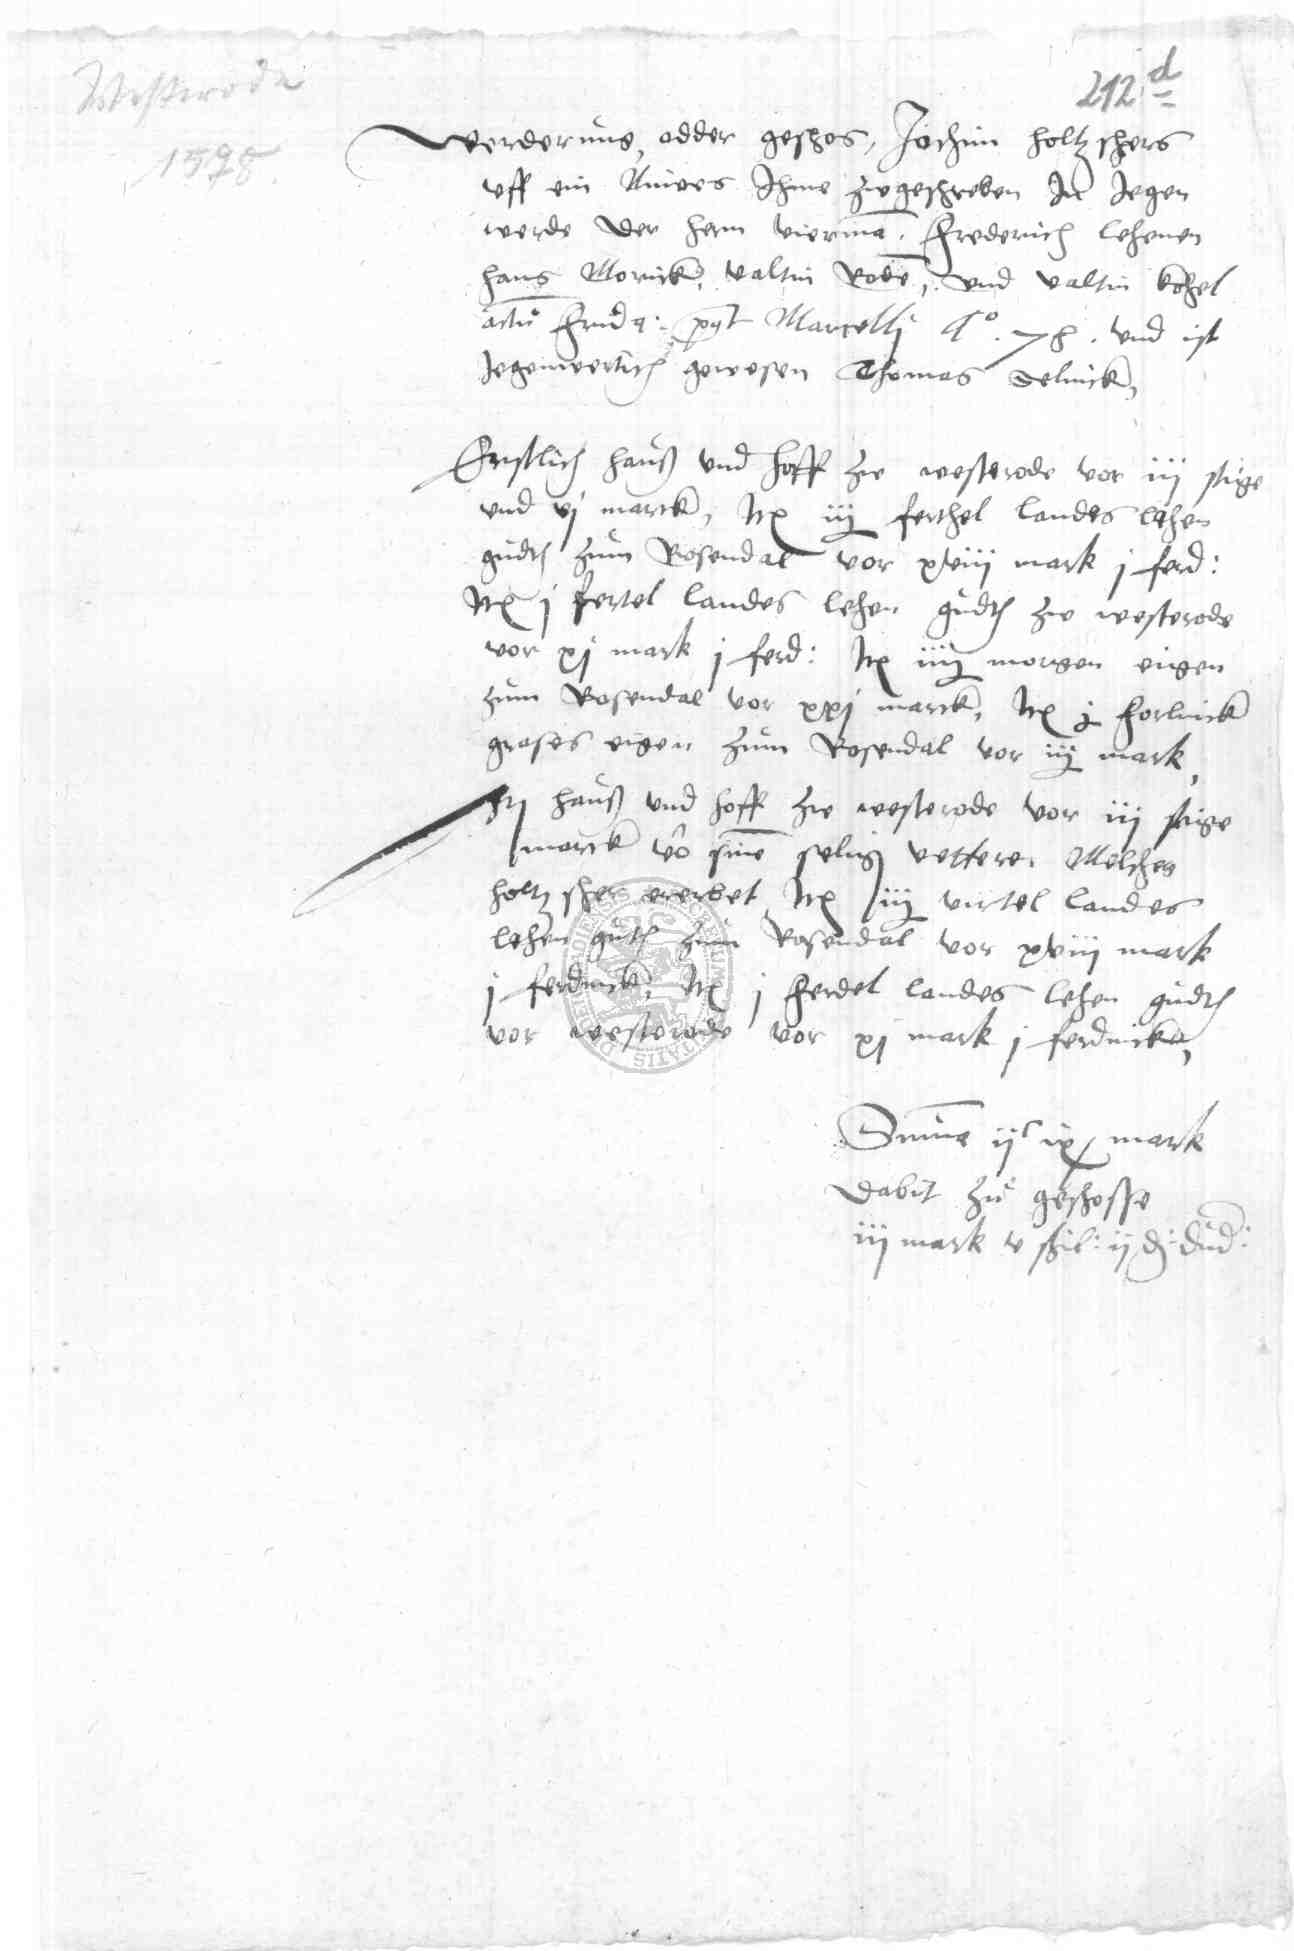 Westerode
1578.
212 d
Werderung odder geschos, Jochim holtzschers
vff ein Nuwes Ihme zugeschreben In Jegen
werde der hern vierma. Frederich lehenen
hans Morick, valtin Rode, vnd valtin
actu pt Marcelli Ao. 78. vnd ist
Jegenwertich gewesen Thomas Selnick,
Erstlich hauß vnd hoff zw westerode vor iij stige
vnd vj marck, Itm iij ferthel landes lehen
gudth zum Rosendal vor xviij mark j ferd:
Itm j fertel landes lehen gudth zw westerode
vor xj mark j ferd: Itm morgen eigen
zum Rosendal vor xxj marck, Itm forlinck
grases eigen zum Rosendal vor mark,
Itm hauß vnd hoff zw westerode vor iij stige
marck vo sine selig vettere Melcher
holtzscher ererbet, Itm virtel landes
lehen guth zum Rosendal vor xviij mark
j ferdinck, Itm j ferdel landes lehen gudth
vor westerode vor xj mark j ferdinck,
Summa ijc ix mark
dabit zu geschosse
iij mark v schil: ij d: